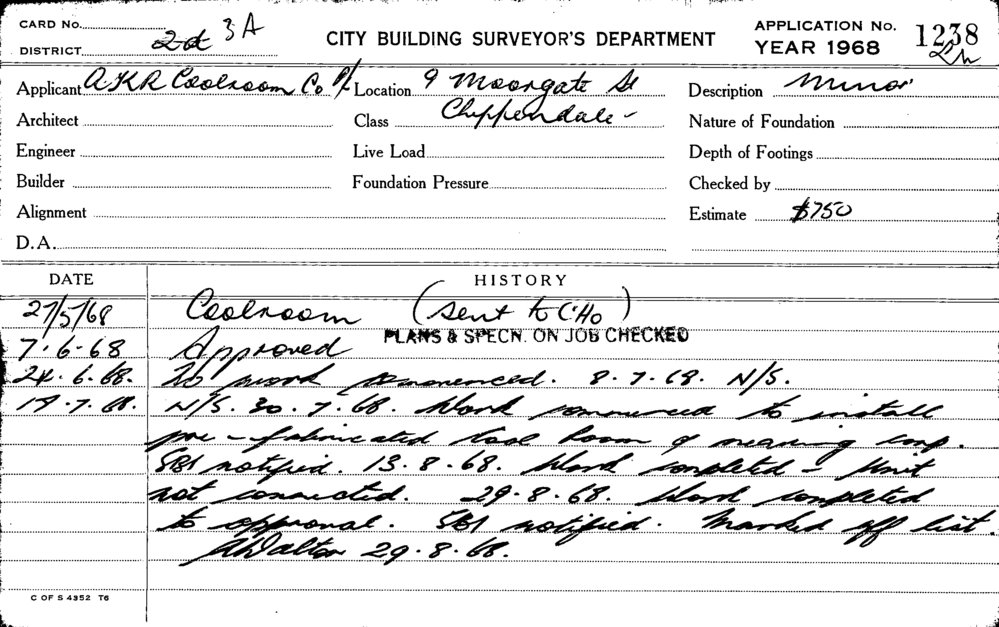 CARD No.
2d 3A
DISTRICT
CITY BUILDING SURVEYOR'S DEPARTMENT
APPLICATION No. 1238
YEAR 1968
Applicant A.K.R. Coolroom Co P/L
Location 9 Moorgate St
Chippendale -
Description Minor
Architect
Class
Nature of Foundation
Engineer
Live Load
Depth of Footings
Builder
Foundation Pressure
Checked by
Alignment
Estimate $750
D.A.
DATE HISTORY
27/5/68 Coolroom (Sent to C.H.O)
PLANS & SPECN. ON JOB CHECKED
7.6.68 Approved
24.6.68. No work commenced. 8.7.68. N/S.
19.7.68. N/S. 30.7.68. Work commenced to install
pre-fabricated Cool Room & nearing comp.
SBI notified. 13.8.68. Work completed - Unit
not connected. 29.8.68. Work completed
to approval. SBI notified. Marked off list.
Walton 29.8.68.
C OF S 4352 T6